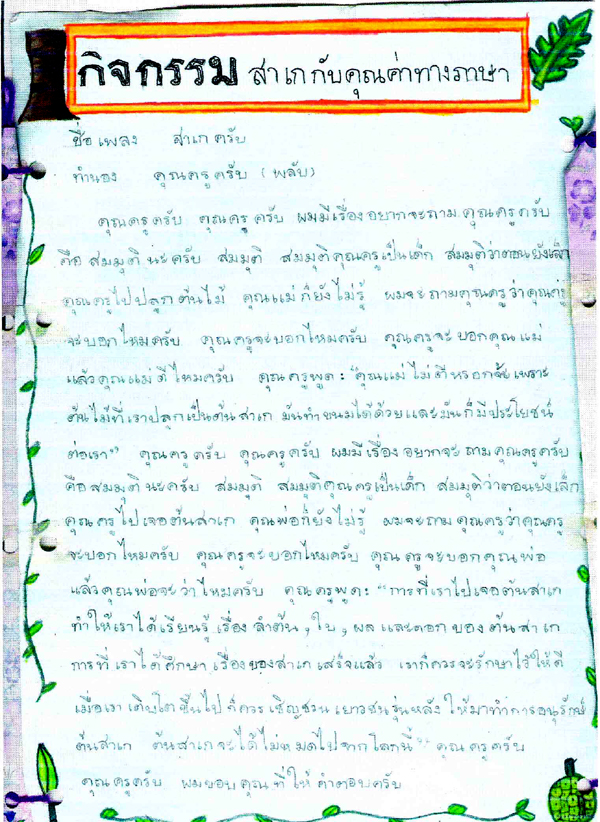 กิจกรรม สาเกกับคุณค่าทางภาษา
ชื่อเพลง สาเกครับ
ทำนอง คุณครูครับ (พลับ)
คุณครูครับ คุณครูครับ ผมมีเรื่องอยากจะถามคุณครูครับ
คือสมมุตินะครับ สมมุติ สมมุติคุณครูเป็นเด็ก สมมุติว่าตอนยังเล็ก
คุณครูไปปลูกต้นไม้ คุณแม่ก็ยังไม่รู้ ผมจะถามคุณครูว่าคุณครู
จะบอกไหมครับ คุณครูจะบอกไหมครับ คุณครูจะบอกคุณแม่
แล้วคุณแม่ตีไหมครับ คุณครูพูด: "คุณแม่ไม่ตีหรอกจ้ะเพราะ
ต้นไม้ที่เราปลูกเป็นต้นสาเก มันทำขนมได้ด้วยและมันก็มีประโยชน์
ต่อเรา" คุณครูครับ คุณครูครับ ผมมีเรื่องอยากจะถามคุณครูครับ
คือสมมุตินะครับ สมมุติ สมมุติคุณครูเป็นเด็ก สมมุติว่าตอนยังเล็ก
คุณครูไปเจอต้นสาเก คุณพ่อก็ยังไม่รู้ ผมจะถามคุณครูว่าคุณครู
จะบอกไหมครับ คุณครูจะบอกไหมครับ คุณครูจะบอกคุณพ่อ
แล้วคุณพ่อจะว่าไหมครับ คุณครูพูด: "การที่เราไปเจอต้นสาเก
ทำให้เราได้เรียนรู้เรื่อง ลำต้น, ใบ, ผล และดอกของต้นสาเก
การที่เราได้ศึกษาเรื่องของสาเกเสร็จแล้ว เราก็ควรจะรักษาไว้ให้ดี
เมื่อเราเติบโตขึ้นไปก็ควรเชิญชวนเยาวชนรุ่นหลังให้มาทำการอนุรักษ์
ต้นสาเก ต้นสาเกจะได้ไม่หมดไปจากโลกนี้" คุณครูครับ
คุณครูครับ ผมขอบคุณที่ให้คำตอบครับ